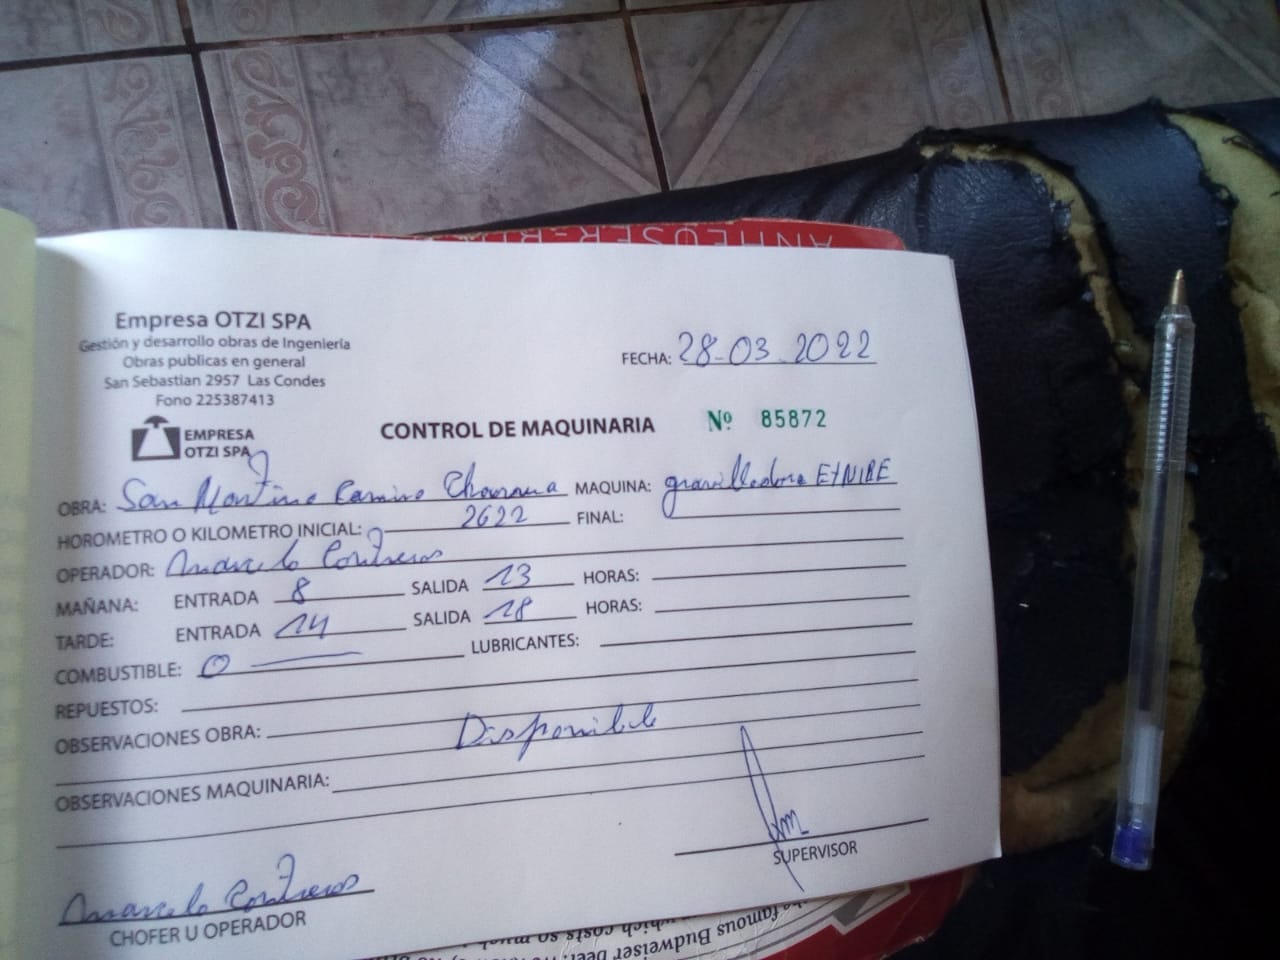 ANHEUSER-BU
Empresa OTZI SPA
Gestión y desarrollo obras de Ingeniería
Obras publicas en general
San Sebastian 2957 Las Condes
Fono 225387413
FECHA: 28-03-2022
EMPRESA
OTZI SPA
CONTROL DE MAQUINARIA Nº 85872
OBRA: San Martino Camino Charana MAQUINA: gravilladora ETNIRE
HOROMETRO O KILOMETRO INICIAL: 2622 FINAL:
OPERADOR: Marcelo Contreras
MAÑANA: ENTRADA 8 SALIDA 13 HORAS:
TARDE: ENTRADA 14 SALIDA 18 HORAS:
COMBUSTIBLE: 0 LUBRICANTES:
REPUESTOS:
OBSERVACIONES OBRA: Disponible
OBSERVACIONES MAQUINARIA:
SUPERVISOR
Marcelo Contreras
CHOFER U OPERADOR
famous Budweiser beer.
which costs so much